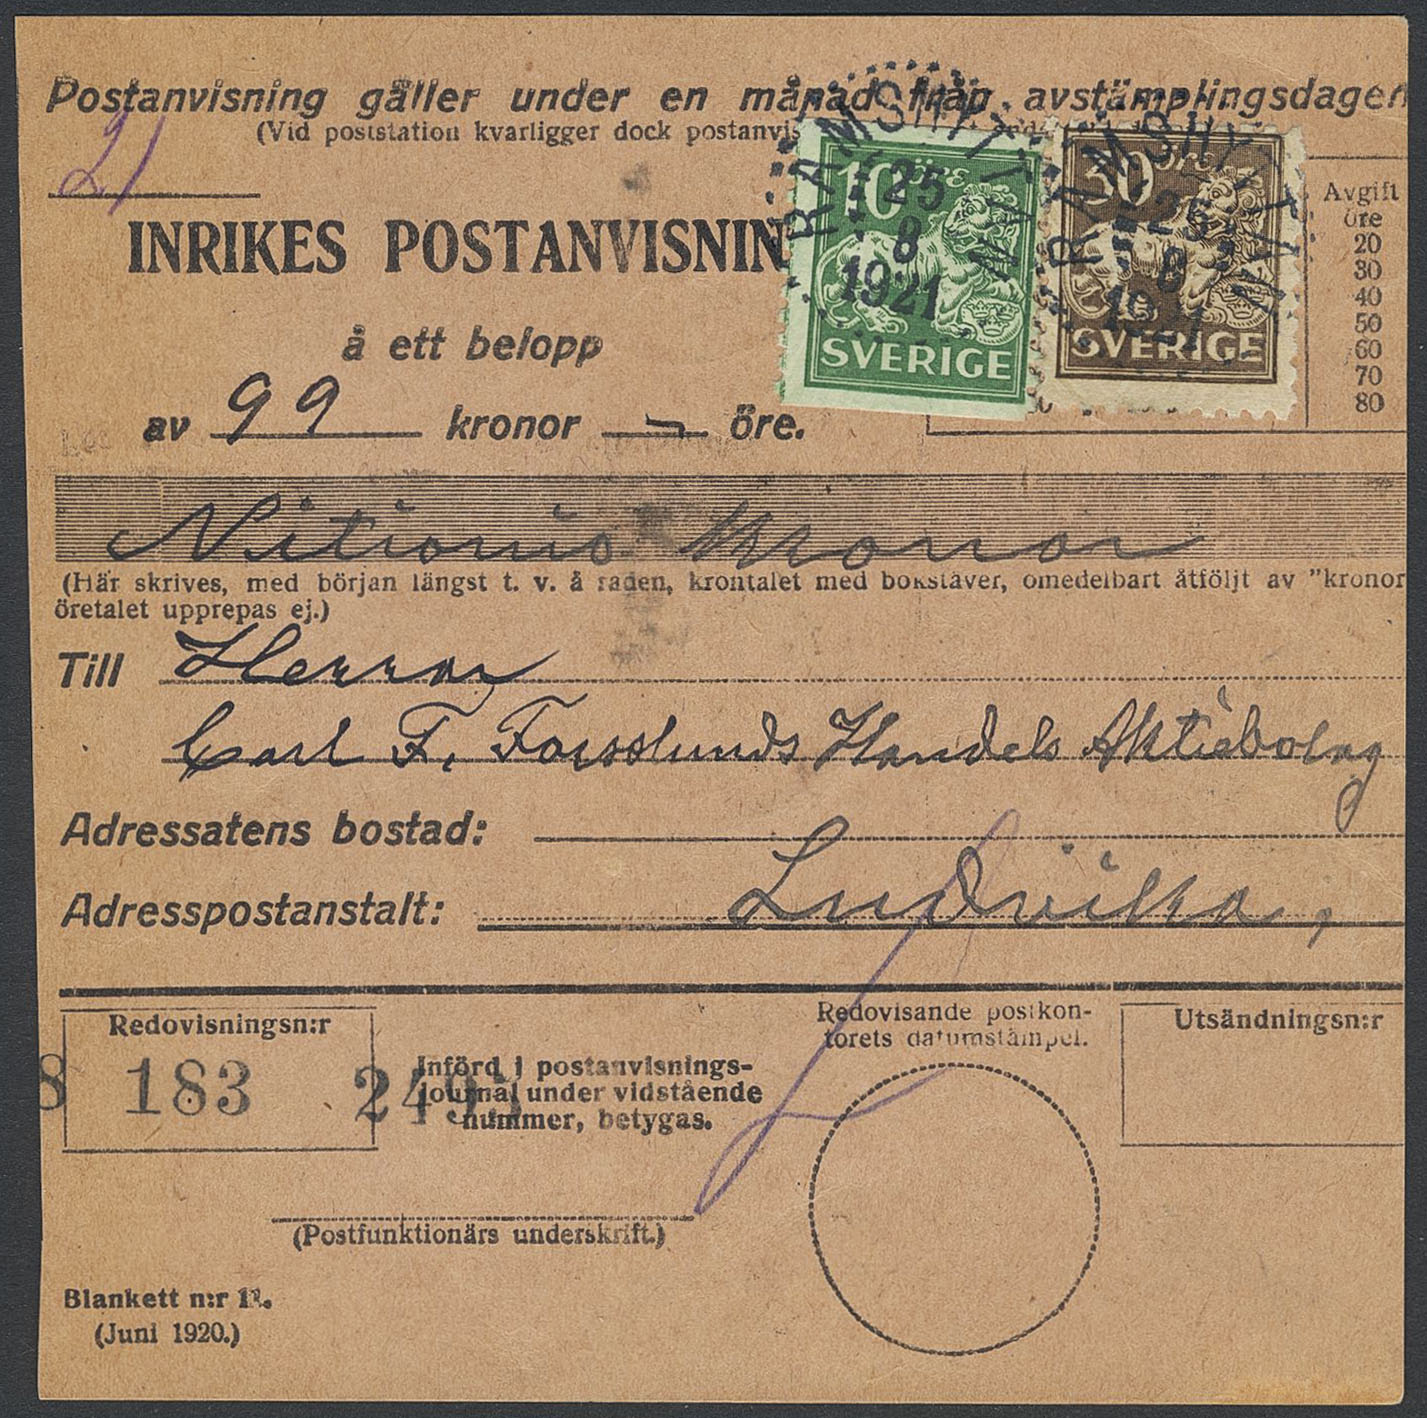 Postanvisning gäller under en månad från avstämplingsdagen
(Vid poststation kvarligger dock postanvis
21
INRIKES POSTANVISNIN
å ett belopp
av 99 kronor — öre.
10 ÖRE
SVERIGE
RAMSHYTTAN
25
8
1921
30 ÖRE
SVERIGE
RAMSHYTTAN
25
8
1921
Avgift
öre
20
30
40
50
60
70
80
Nitionio Kronor
(Här skrives, med början längst t. v. å raden, krontalet med bokstäver, omedelbart åtföljt av "kronor
öretalet upprepas ej.)
Till Herrar
Carl F. Forsslunds Handels Aktiebolag
Adressatens bostad:
Adresspostanstalt: Ludvika,
Redovisningsn:r
8 183
Införd i postanvisnings-
journal under vidstående
nummer, betygas.
Redovisande postkon-
torets datumstämpel.
Utsändningsn:r
(Postfunktionärs underskrift.)
Blankett n:r 11.
(Juni 1920.)